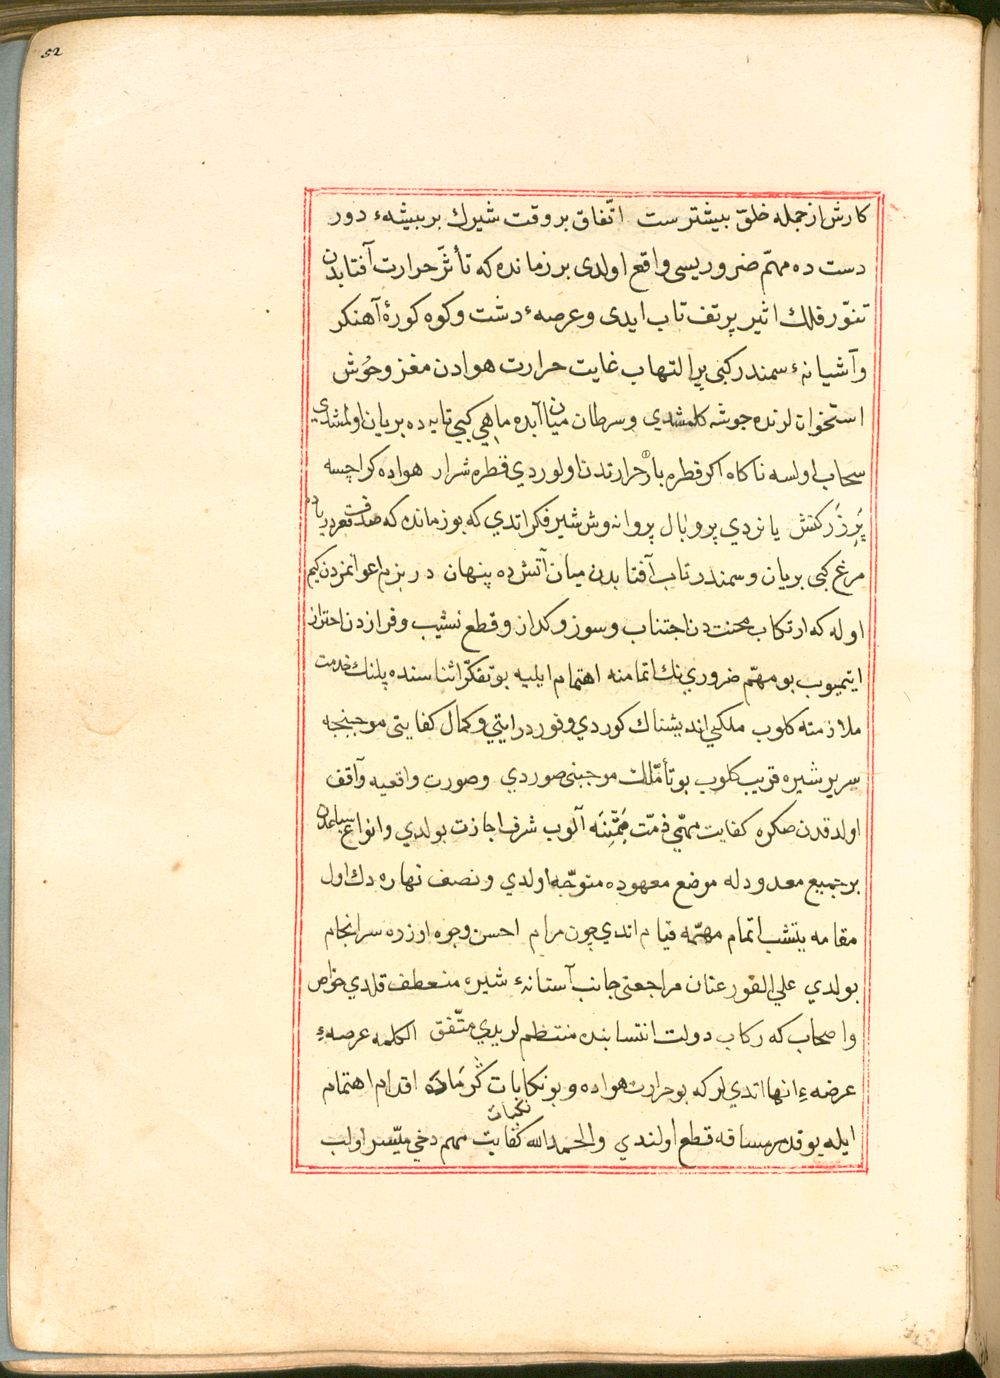 52
كارش از جمله خلق بیشترست اتّفاق بر وقت شیرك بر بیشهٔ دور
دست ده مهمّ ضروریسی واقع اولدی بر زمانده كه تأثّر حرارت آفتابدن
تنّور فلك اثیر پر تف تاب ایدی و عرصهٔ دشت و كوه كورهٔ آهنكر
و آشیانهٔ سمندر كبی پر التهاب غایت حرارت هوادن مغز وحوش
استخوانلرنده جوشه كلمشدی و سرطان میان آبده ماهی كبی تابه ده بریان اولمشدی
سحاب اولسه ناكاه اكر قطره بار حرارتدن اولوردی قطره شرار هواده كر اچسه
پر زركش یانردی پر و بال پروانه وش شیر فكر اتدی كه بو زمانده كه صدف قعر دریاده
مرغ كبی بریان و سمندر تاب آفتابدن میان آتش ده پنهان در بزم اعوانمزدن كیم
اوله كه ارتكاب محنتدن اجتناب و سوز و كداز و قطع نشیب و فرازدن احتراز
ایتمیوب بو مهمّ ضروری نك اتمامنه اهتمام ایلیه بو تفكّر اثناسنده پلنك خدمت
ملازمته كلوب ملكی اندیشناك كوردی و نور درایتی و كمال كفایتی موجبنجه
سریر شیره قریب كلوب بو تأمّلك موجبنی صوردی و صورت واقعیه واقف
اولدقدن صكره كفایت مهمّی ذمّت همّتنه آلوب شرف اجازت بولدی و انواع سباعدن
بر جمیع معدودله موضع معهوده متوجّه اولدی و نصف نهاره دك اول
مقامه یتشب اتمام مهمّه قیام اتدی چون مرام احسن وجوه ارزره سرانجام
بولدی علی الفور عنان مراجعتی جانب آستانهٔ شیره منعطف قلدی خواص
و اصحاب كه ركاب دولت انتسابنده منتظم لر یدی متّفق الكلمه عرصهٔ
عرضهٔ انها اتدیلر كه بو حرارت هواده و بو نكابات كرماده اقدام اهتمام
نكبات
ایله بو قدر مسافه قطع اولندی والحمد الله كفایت مهم دخی میّسر اولب